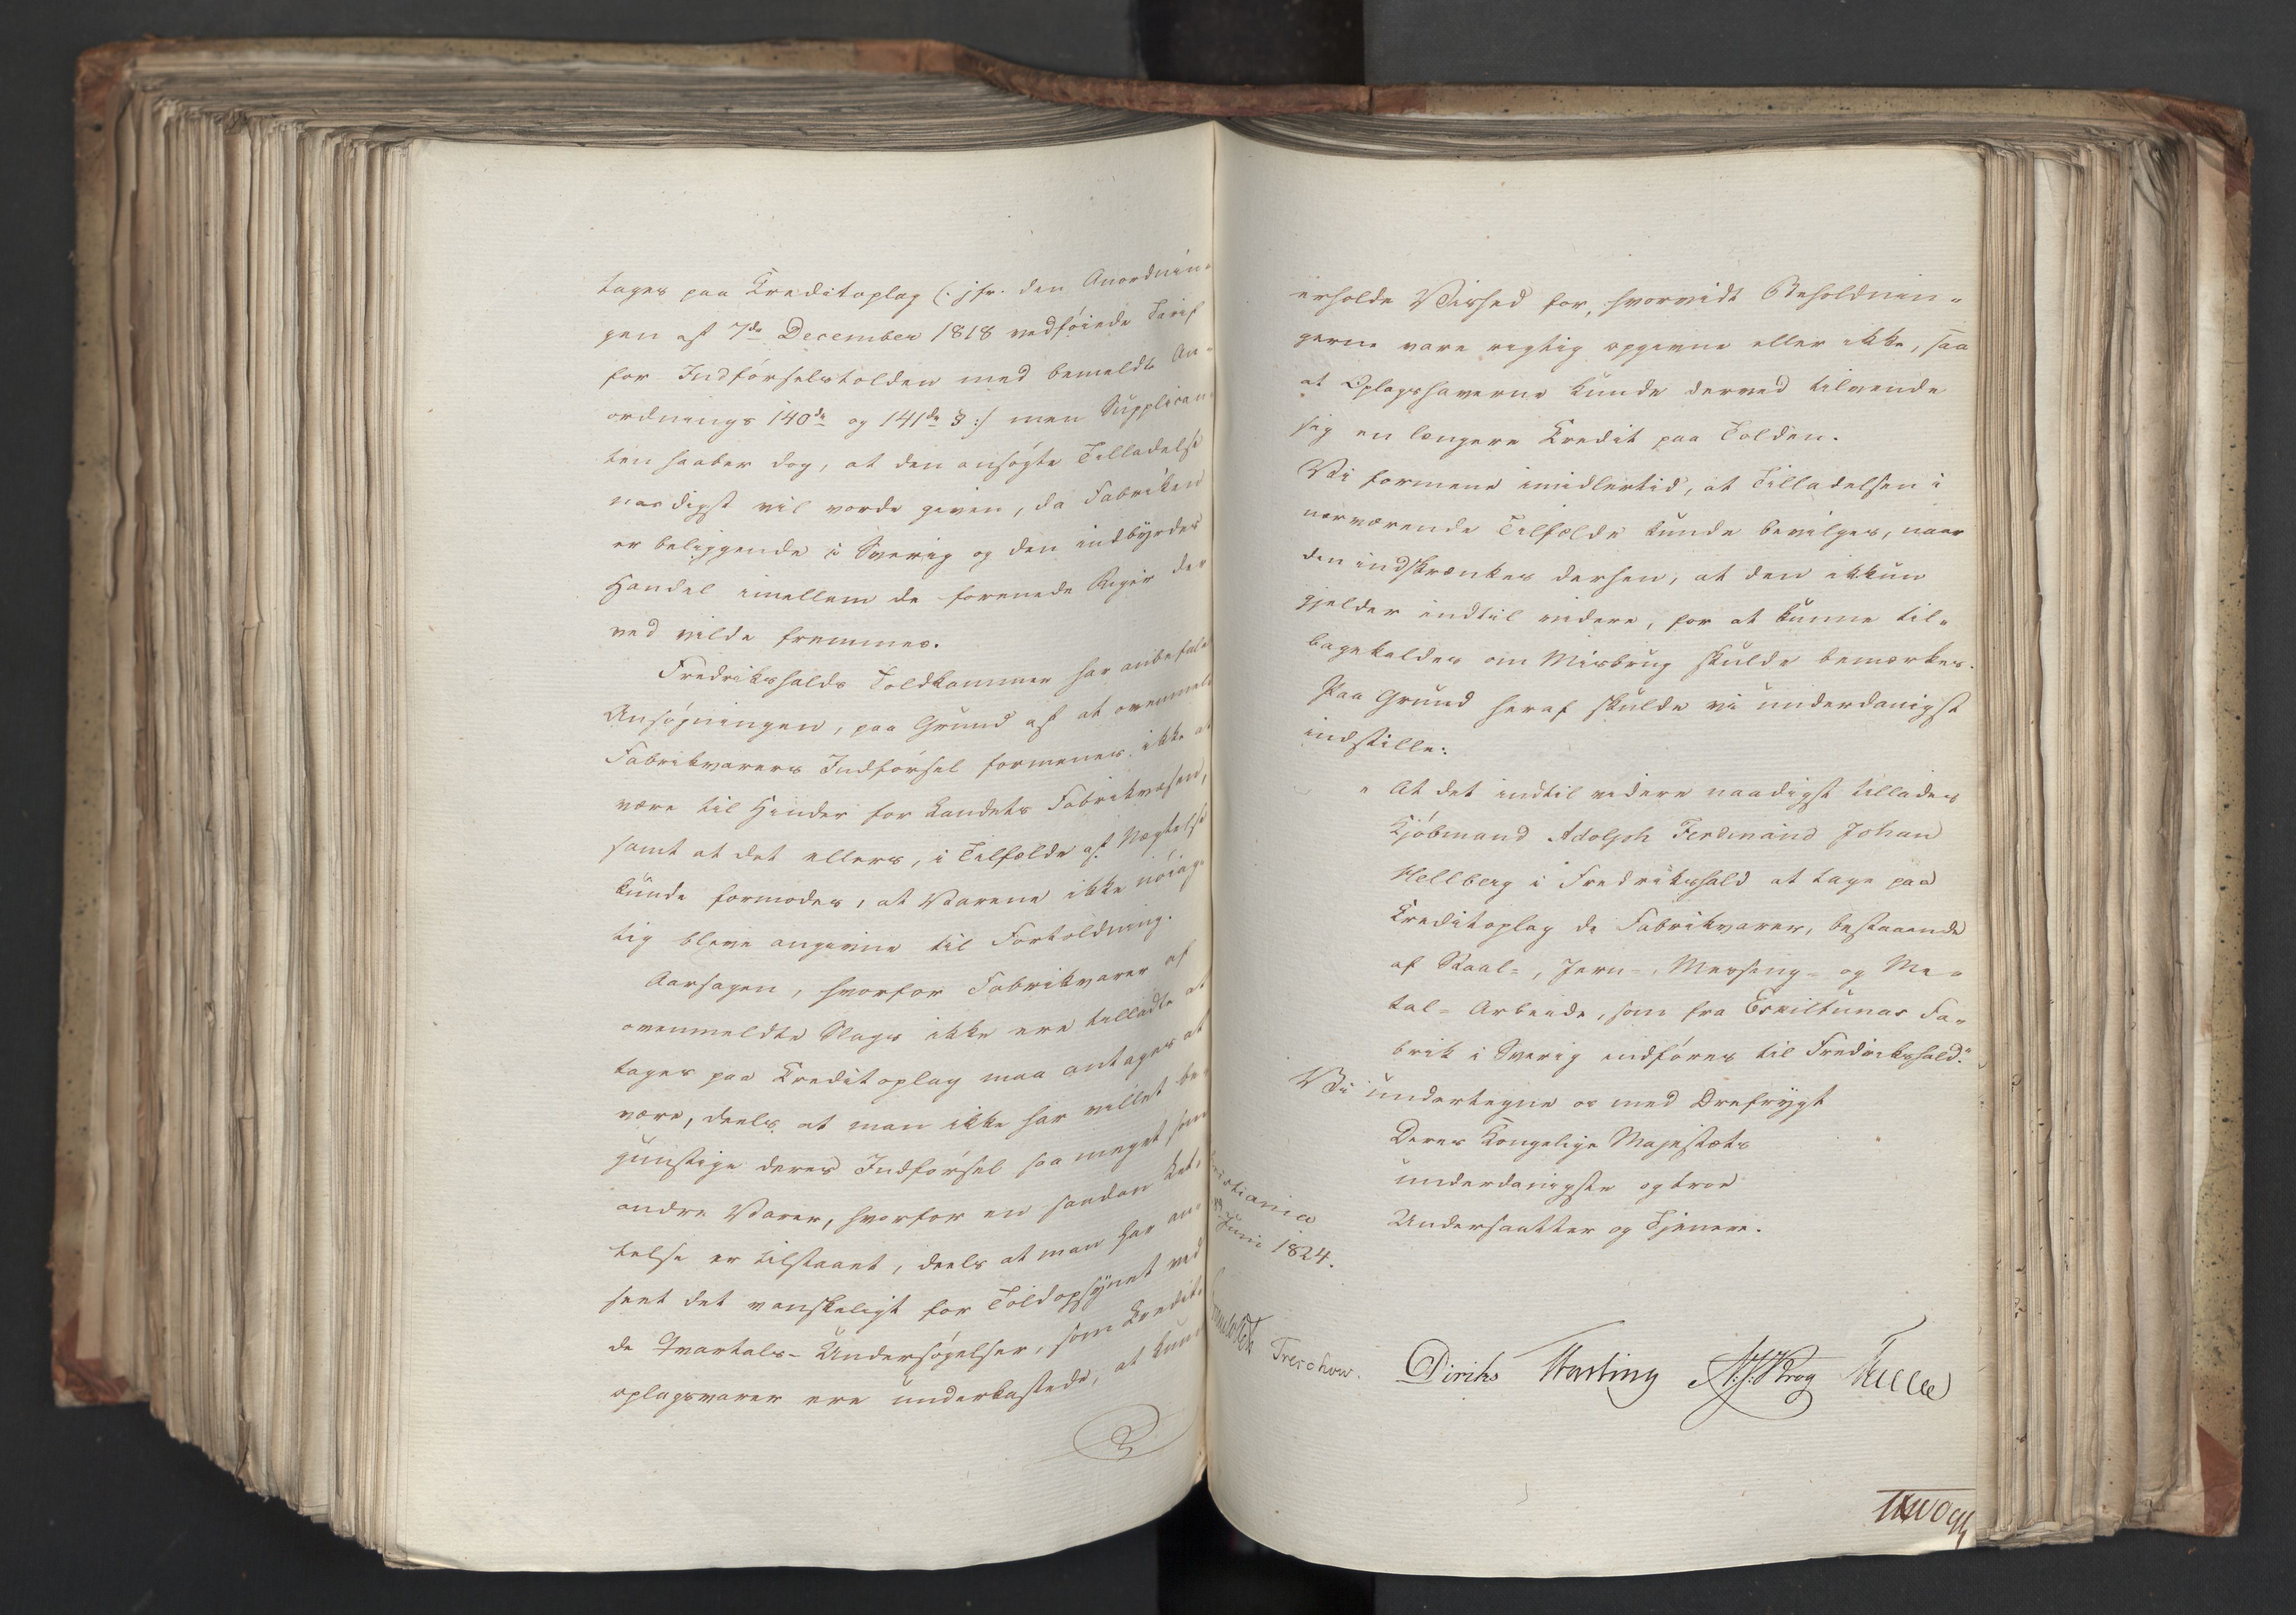 tages paa Creditoplag (: jfr. den Anordnin-
gen af 7de December 1818 vedføiede Tarif
for Indførselstolden med bemeldte An-
ordnings 140de og 141de § :/ men Supplican-
ten haaber dog, at den ansøgte Tilladelse
naadigst vil vorde given, da Fabriken
er beliggende i Sverig og den indbyrdes
Handel imellem de forenede Riger der
ved vilde fremmes.
Fredrikshalds Toldkammer har anbefalet
Ansøgningen, paa Grund af at ovenmeldte
Fabrikvarers Indførsel formenes ikke at
være til Hinder for Landets Fabrikvæsen,
samt at det ellers, i Tilfælde af Nægtelse
kunde formodes, at Varene ikke nøiag-
tig bleve angivne til Fortoldning.
Aarsagen, hvorfor Fabrikvarer af
ovenmeldte Slags ikke ere tilladte at
tages paa Creditoplag maa antages at
være, deels at man ikke har villet be-
gunstige deres Indførsel saa meget som
andre Varer, hvorfor en saadan Let-
telse er tilstaaet, deels at man har an-
seet det vanskeligt for Toldopsynet ved
de Qvartals-Undersøgelser, som Credit-
oplagsvarer ere underkastede, at kunne
erholde Vished for, hvorvidt Beholdnin-
gerne vare rigtig opgivne eller ikke, saa
at Oplagshaverne kunde derved tilvende
sig en længere Credit paa Tolden.
Vi formene imidlertid, at Tilladelsen i
nærværende Tilfælde kunde bevilges, naar
den indskrænkes derhen, at den ikkun
gjelder indtil videre, for at kunne til-
bagekaldes om Misbrug skulde bemærkes.
Paa Grund heraf skulde vi underdanigst
indstille:
"At det indtil videre naadigst tillades
Kjøbmand Adolph Ferdinand Johan
Hellberg i Fredrikshald at tage paa
Creditoplag de Fabrikvarer, bestaaende
af Staal-, Jern-, Messing- og Me-
tal-Arbeide, som fra Eskiltunas Fa-
brik i Sverig indføres til Fredrikshald."
Vi undertegne os med Ærefrygt
Deres Kongelige Majestæts
underdanigste og troe
Undersaatter og Tjenere.
ristiania
Juni 1824.
Treschow. Diriks Motzfeldt Krog